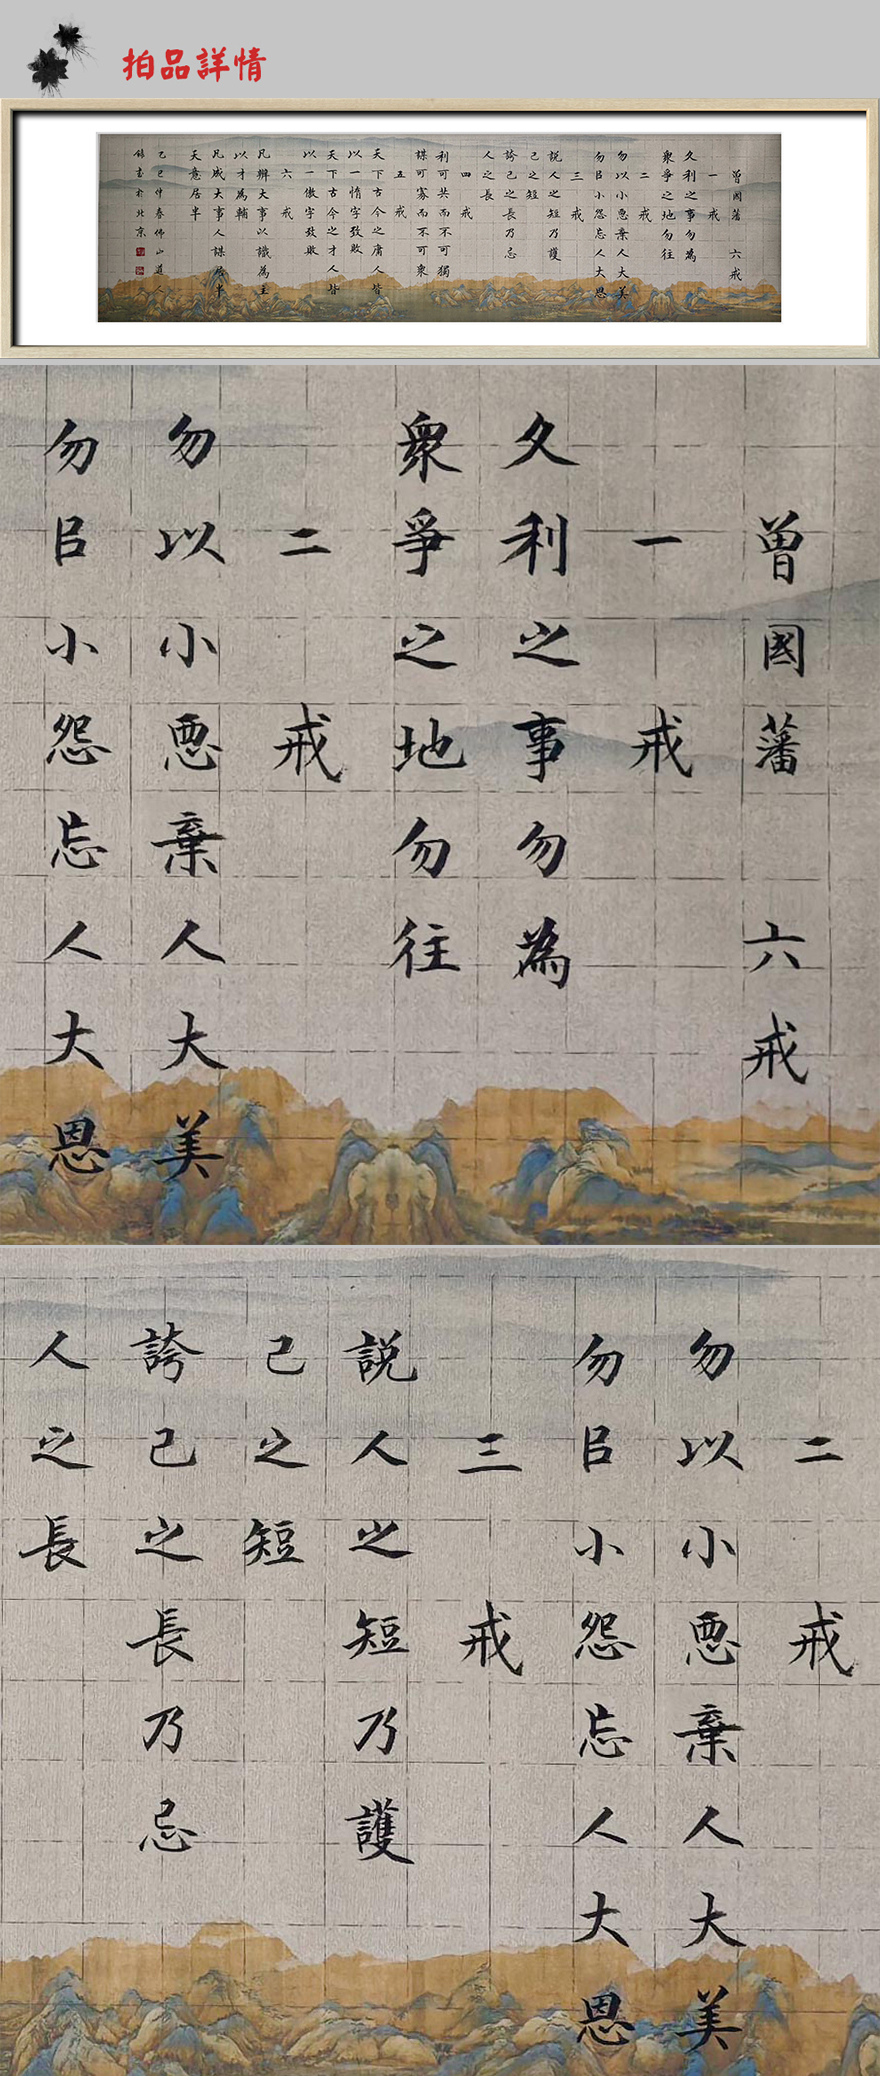 拍品詳情
曾國藩 六戒
一戒
久利之事勿為
衆爭之地勿往
二戒
勿以小惡棄人大美
勿㠯小怨忘人大恩
三戒
説人之短乃護
己之短
誇己之長乃忌
人之長
四戒
利可共而不可獨
謀可寡而不可衆
五戒
天下古今之庸人皆
以一惰字致敗
天下古今之才人皆
以一傲字致敗
六戒
凡辦大事以識為主
以才為輔
凡成大事人謀居半
天意居半
乙巳仲春佛山道人
錄書於北京
曾國藩 六戒
一戒
久利之事勿為
衆爭之地勿往
二戒
勿以小惡棄人大美
勿㠯小怨忘人大恩
二戒
勿以小惡棄人大美
勿㠯小怨忘人大恩
三戒
説人之短乃護
己之短
誇己之長乃忌
人之長